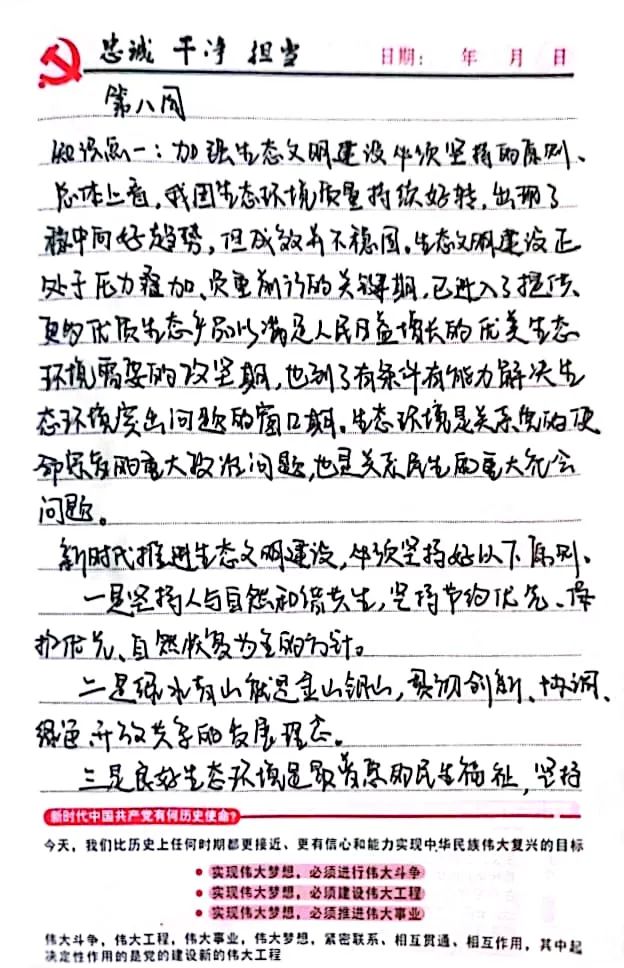 忠诚 干净 担当 日期: 年 月 日
第八周
知识点一：加强生态文明建设必须坚持的原则、
总体上看,我国生态环境质量持续好转,出现了
稳中向好趋势,但成效并不稳固。生态文明建设正
处于压力叠加、负重前行的关键期,已进入了提供
更多优质生态产品以满足人民日益增长的优美生态
环境需要的攻坚期,也到了有条件有能力解决生
态环境突出问题的窗口期。生态环境是关系党的使
命宗旨的重大政治问题,也是关系民生的重大社会
问题。
新时代推进生态文明建设,必须坚持好以下原则、
一是坚持人与自然和谐共生,坚持节约优先、保
护优先、自然恢复为主的方针。
二是绿水青山就是金山银山,贯彻创新、协调、
绿色、开放共享的发展理念。
三是良好生态环境是最普惠的民生福祉,坚持
新时代中国共产党有何历史使命?
今天，我们比历史上任何时期都更接近、更有信心和能力实现中华民族伟大复兴的目标
• 实现伟大梦想，必须进行伟大斗争
• 实现伟大梦想，必须建设伟大工程
• 实现伟大梦想，必须推进伟大事业
伟大斗争，伟大工程，伟大事业，伟大梦想，紧密联系、相互贯通、相互作用，其中起
决定性作用的是党的建设新的伟大工程